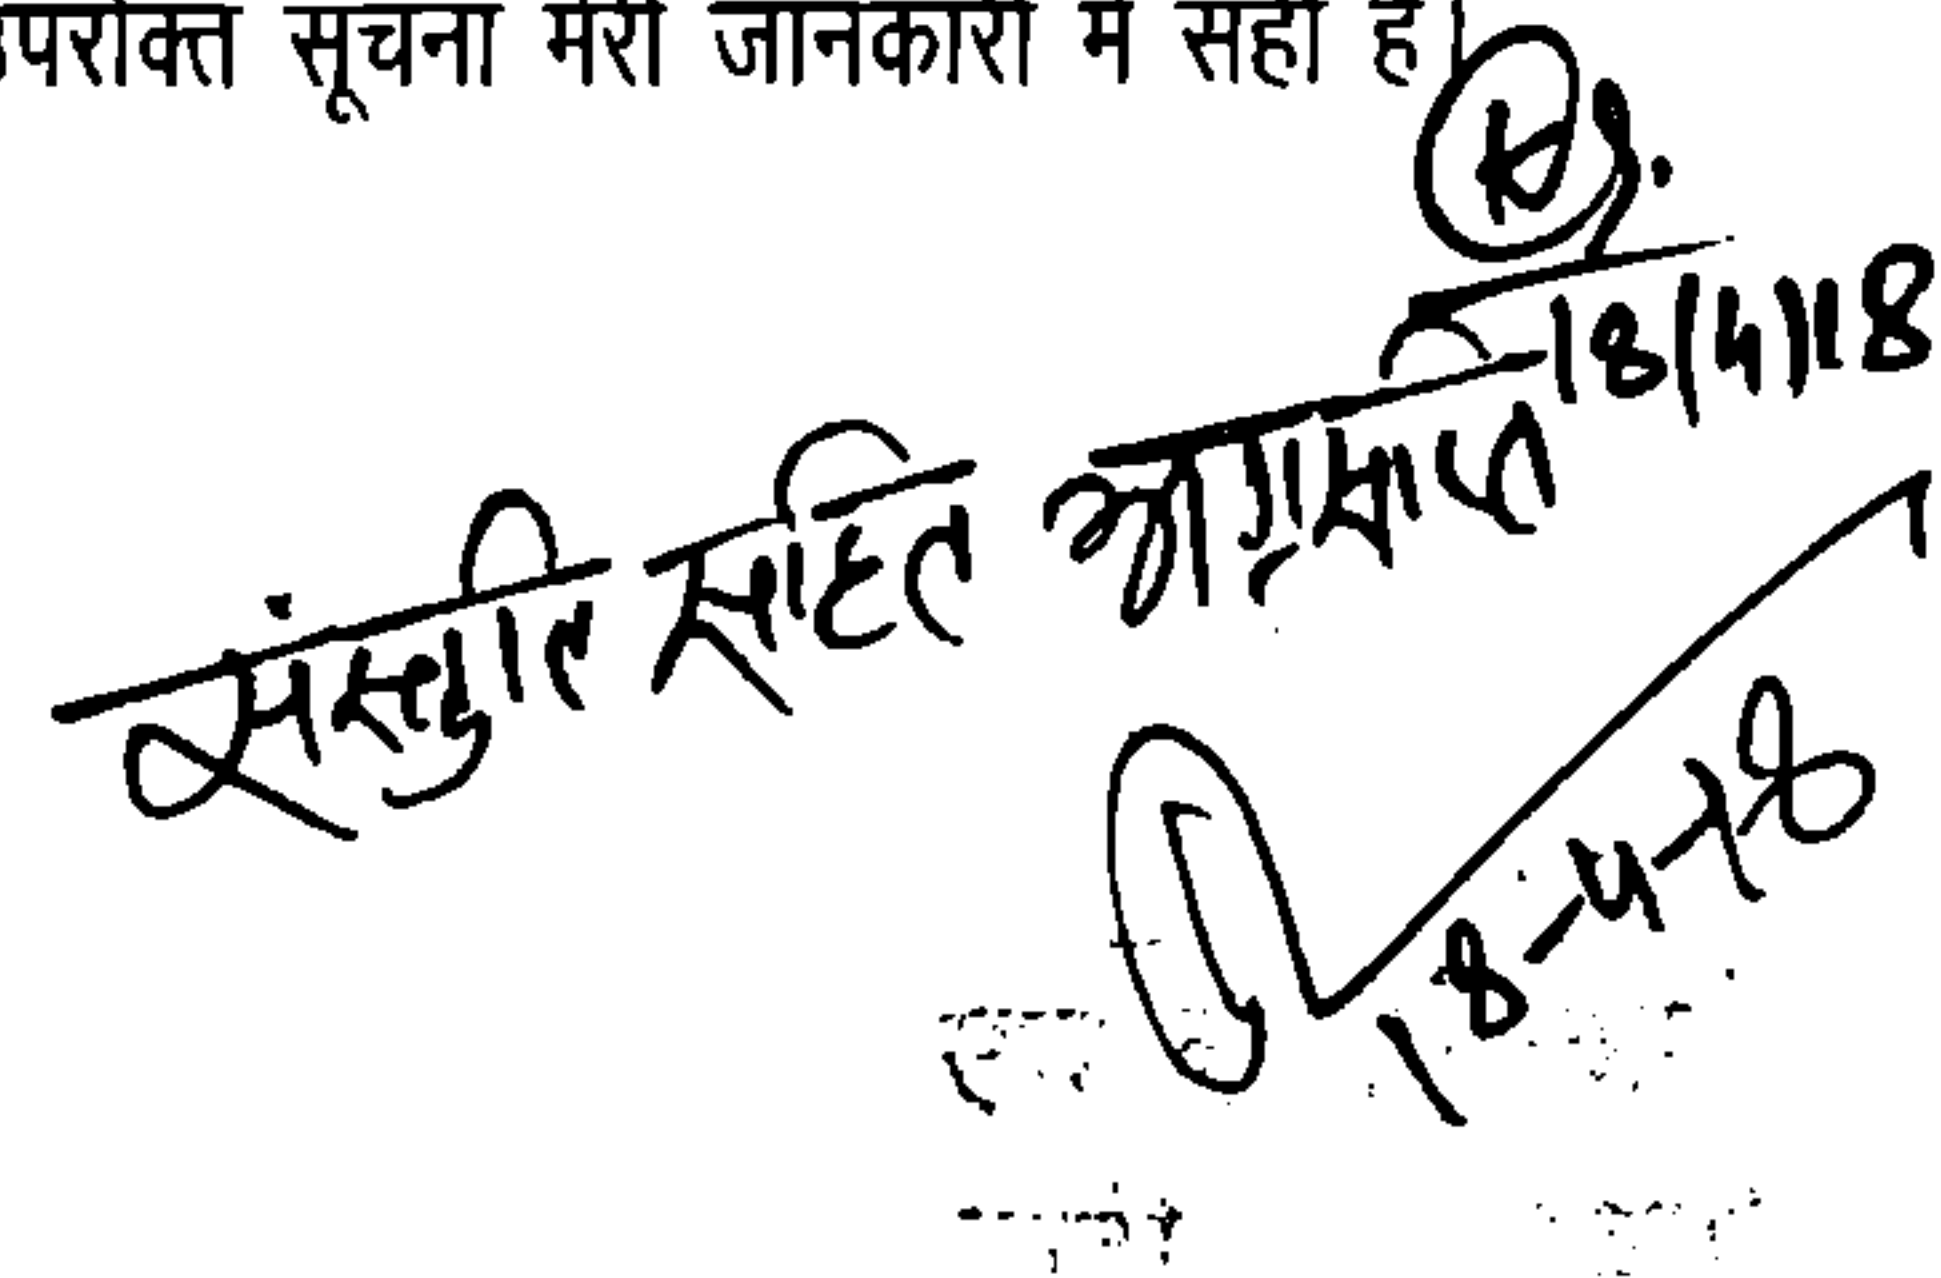 उपरोक्त सूचना मेरी जानकारी में सही है।
18/4/18
संस्तुति सहित अग्रसारित
18-4-18